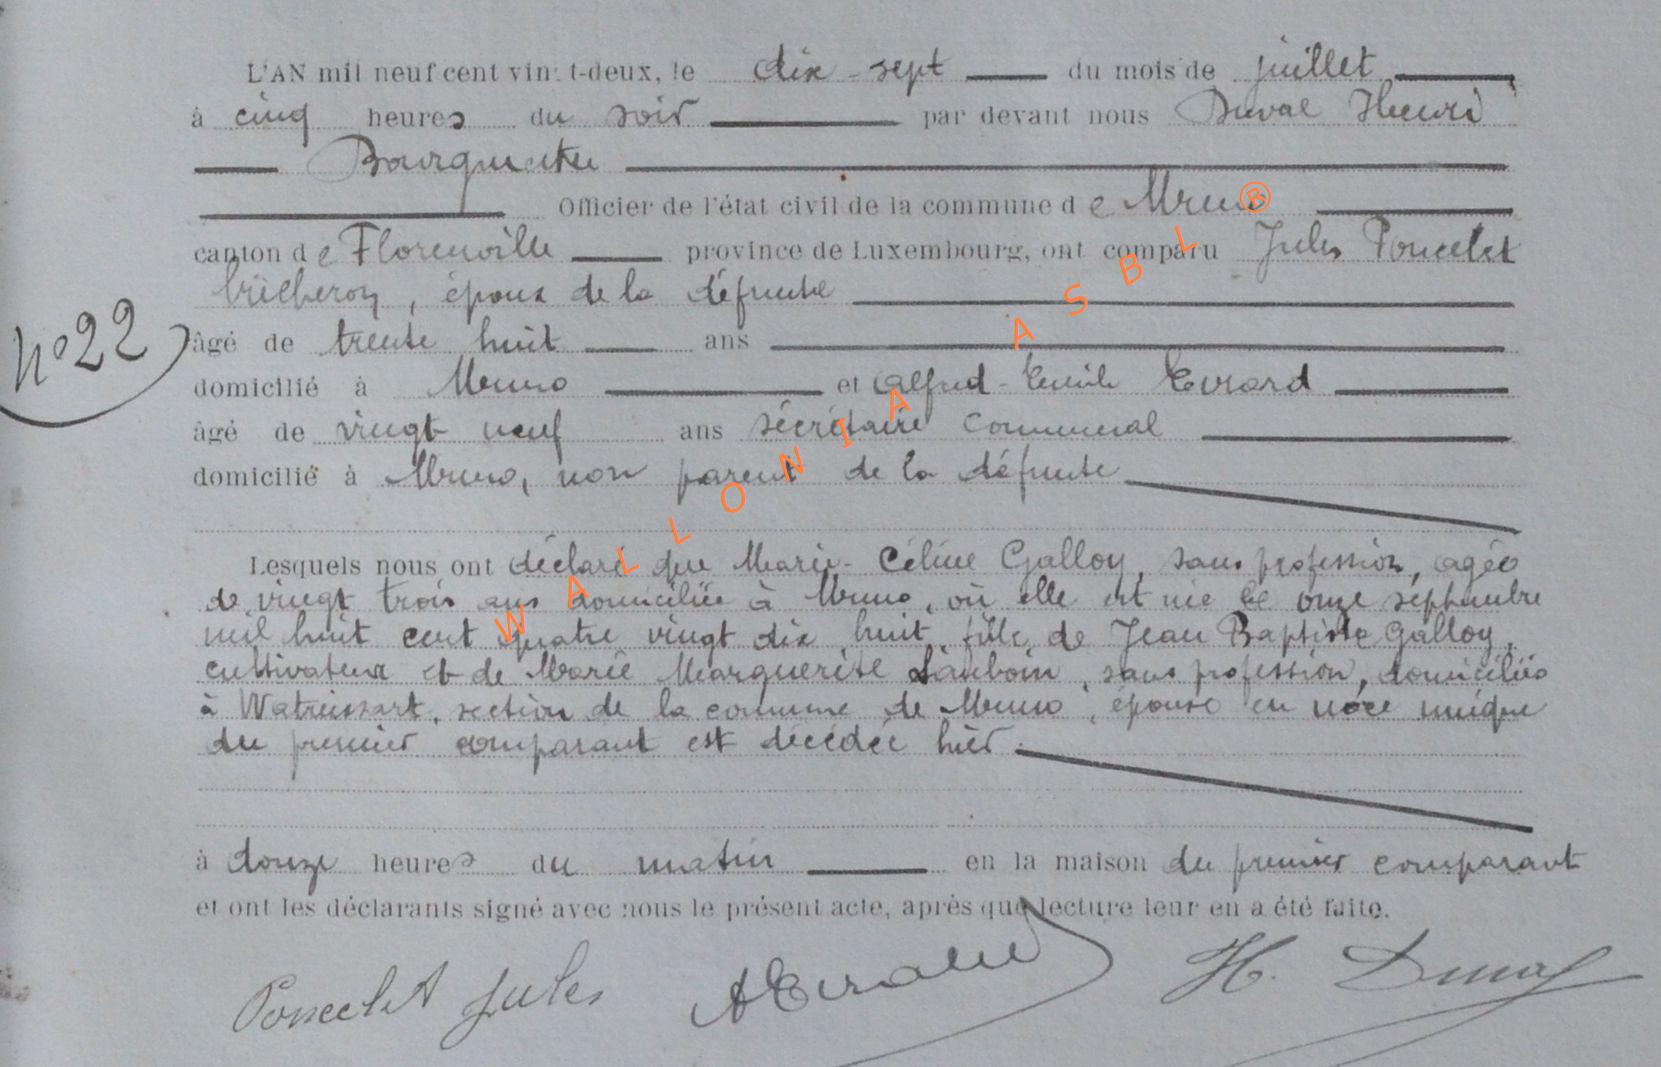 L'AN mil neuf cent vingt-deux, le dix-sept du mois de juillet
à cinq heures du soir par devant nous Duval Henri
Bourgmestre
Officier de l'état civil de la commune de Muno
canton de Florenville province de Luxembourg, ont comparu Jules Poncelet
bûcheron, époux de la défunte
N° 22
âgé de trente huit ans
domicilié à Muno et Alfred-Emile Evrard
âgé de vingt neuf ans sécrétaire communal
domicilié à Muno, non parent de la défunte
Lesquels nous ont déclaré que Marie-Céline Galloy, sans profession, agée
de vingt trois ans domiciliée à Muno, où elle est née le onze septembre
mil huit cent quatre vingt dix huit, fille de Jean Baptiste Galloy,
cultivateur et de Marie Marguerite, sans profession, domiciliés
à Watrinsart, section de la commune de Muno, épouse en noce unique
du premier comparant est décédée hier
à douze heures du matin en la maison du premier comparant
et ont les déclarants signé avec nous le présent acte, après que lecture leur en a été faite.
Poncelet Jules AEvrard H. Duval
WALLONIA ASBL ®